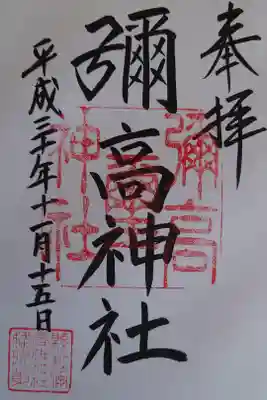 奉拝
彌高神社
平成二十年十一月十五日
彌高
神社